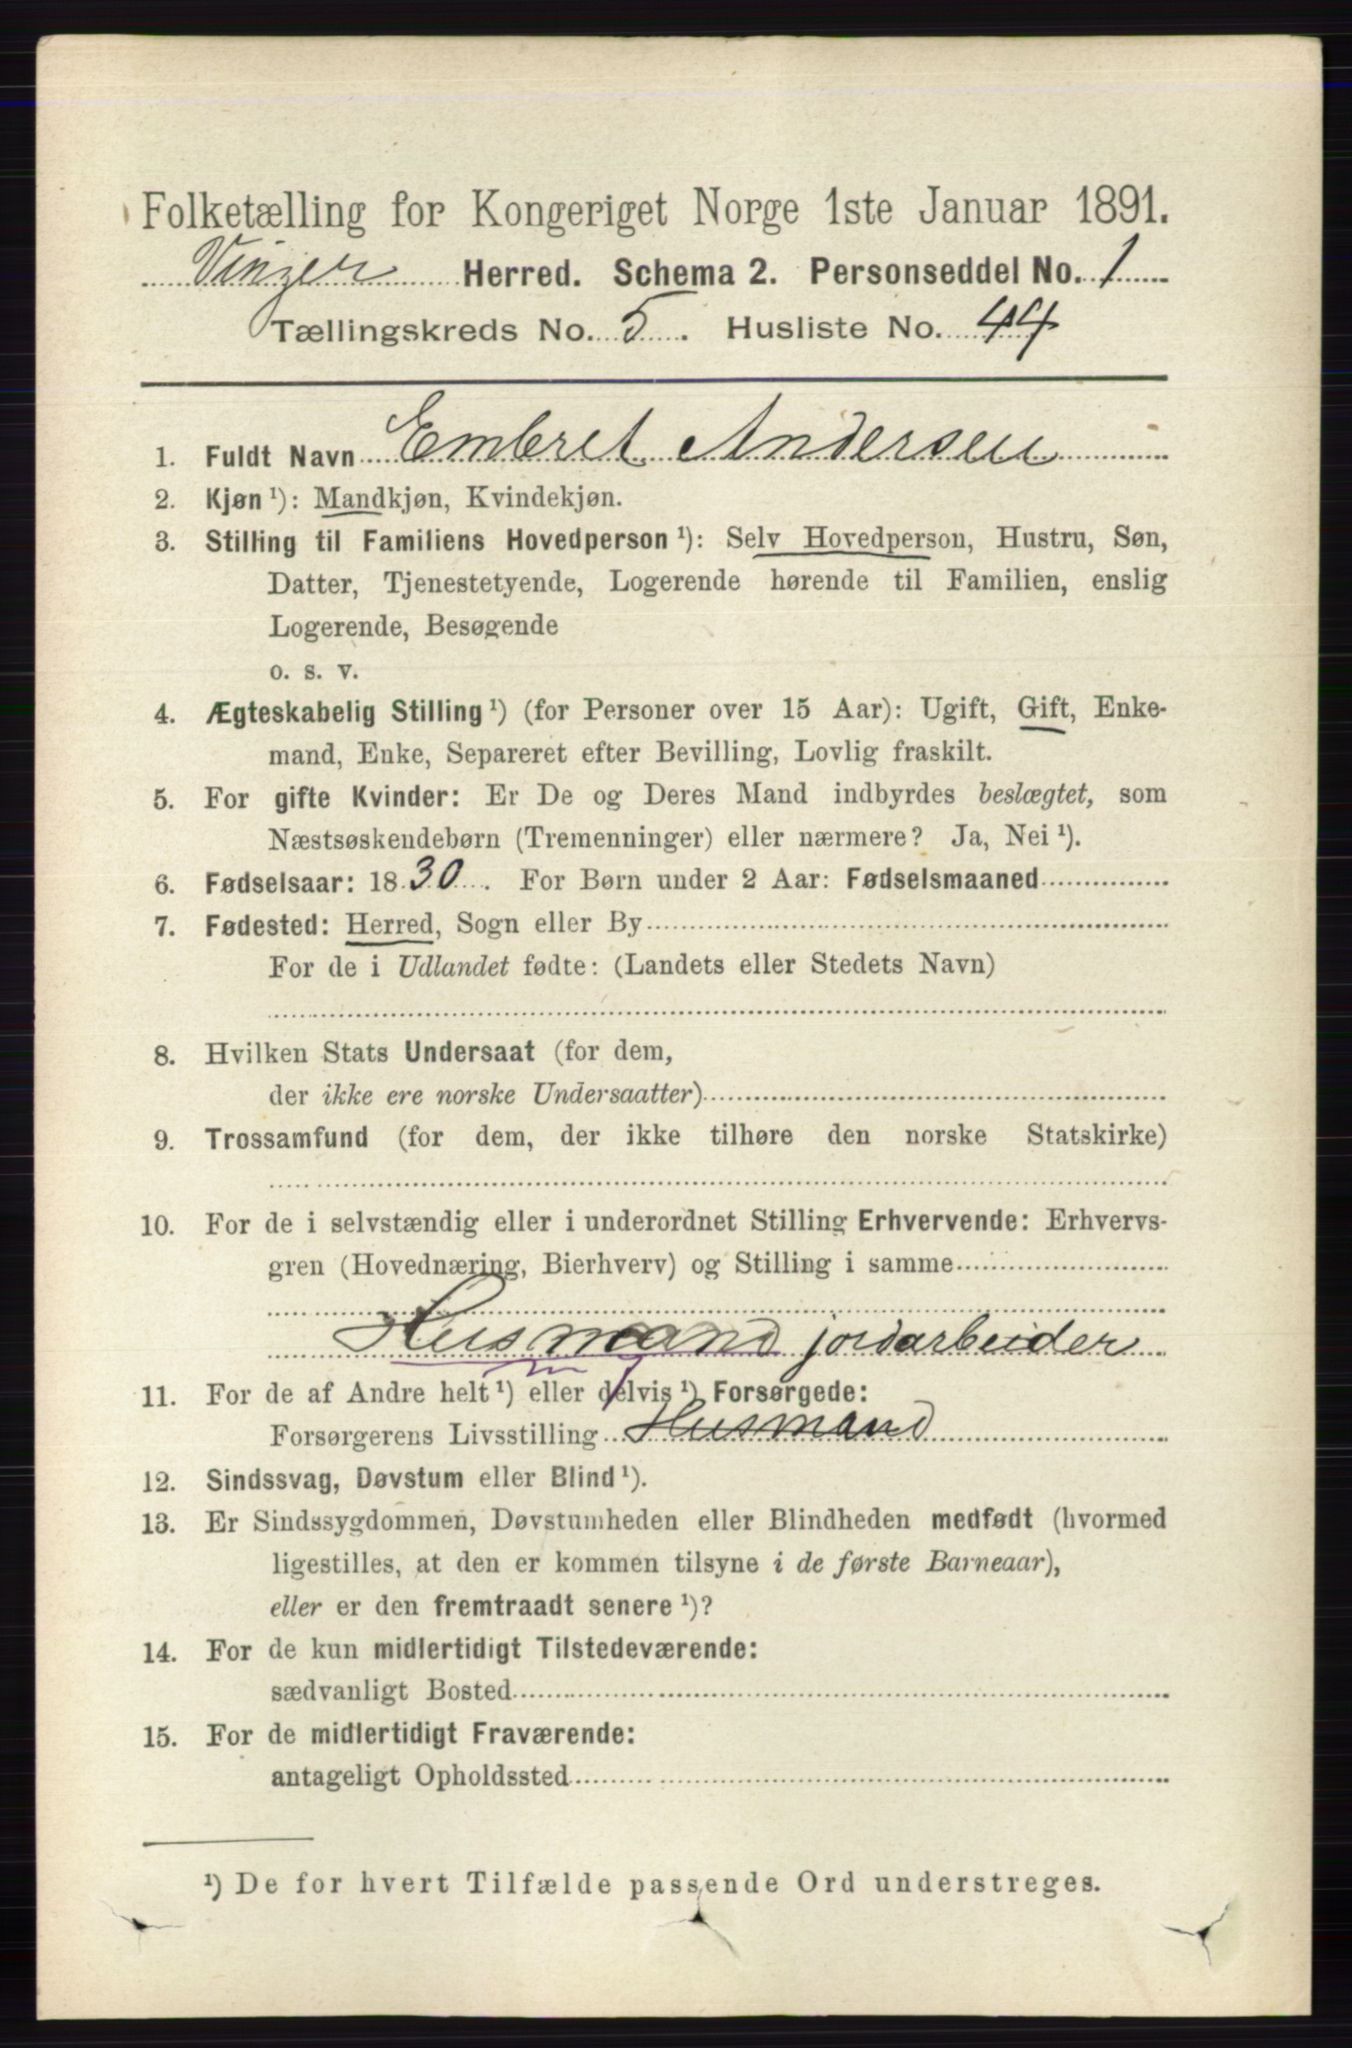 Folketælling for Kongeriget Norge 1ste Januar 1891.
Vinger Herred. Schema 2. Personseddel No. 1
Tællingskreds No. 5. Husliste No. 44
1. Fuldt Navn Embret Andersen
2. Kjøn ¹): Mandkjøn, Kvindekjøn.
3. Stilling til Familiens Hovedperson ¹): Selv Hovedperson, Hustru, Søn,
Datter, Tjenestetyende, Logerende hørende til Familien, enslig
Logerende, Besøgende
o. s. v.
4. Ægteskabelig Stilling ¹) (for Personer over 15 Aar): Ugift, Gift, Enke-
mand, Enke, Separeret efter Bevilling, Lovlig fraskilt.
5. For gifte Kvinder: Er De og Deres Mand indbyrdes beslægtet, som
Næstsøskendebørn (Tremenninger) eller nærmere? Ja, Nei ¹).
6. Fødselsaar: 1830. For Børn under 2 Aar: Fødselsmaaned
7. Fødested: Herred, Sogn eller By
For de i Udlandet fødte: (Landets eller Stedets Navn)
8. Hvilken Stats Undersaat (for dem,
der ikke ere norske Undersaatter)
9. Trossamfund (for dem, der ikke tilhøre den norske Statskirke)
10. For de i selvstændig eller i underordnet Stilling Erhvervende: Erhvervs-
gren (Hovednæring, Bierhverv) og Stilling i samme
Husmand jordarbeider
11. For de af Andre helt ¹) eller delvis ¹) Forsørgede:
Forsørgerens Livsstilling Husmand
12. Sindssvag, Døvstum eller Blind ¹).
13. Er Sindssygdommen, Døvstumheden eller Blindheden medfødt (hvormed
ligestilles, at den er kommen tilsyne i de første Barneaar),
eller er den fremtraadt senere ¹)?
14. For de kun midlertidigt Tilstedeværende:
sædvanligt Bosted
15. For de midlertidigt Fraværende:
antageligt Opholdssted
¹) De for hvert Tilfælde passende Ord understreges.